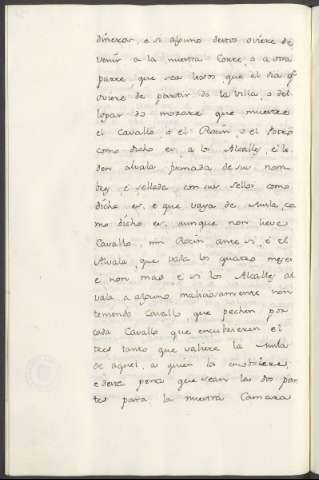 dineras, e si alguno destos oviere de
venir a la nuestra Corte, o a otra
parte, que sea tenos, que el dia q̃
oviere de partir de la Villa, o del
logar do morare que muestre
el Cavallo, o el Rocin, o el Potro
como dicho es, a los Alcalles, e le
den alvala firmada de sus nom
bres, e sellada con sus sellos como
dicho es, e que vaya de Mula, co
mo dicho es, aunque non lieve
Cavallo, nin Rocin ante si, e el
Alvala, que vala los quatro meses
e non mas e si los Alcalles al
vala a alguno maliciosamente non
teniendo Cavallo que pechen por
cada Cavallo que encubrieren el
tres tanto que valiere la Mula
de aquel, a quien la encubriere;
e desta pena que sean las dos par
tes para la nuestra Camara